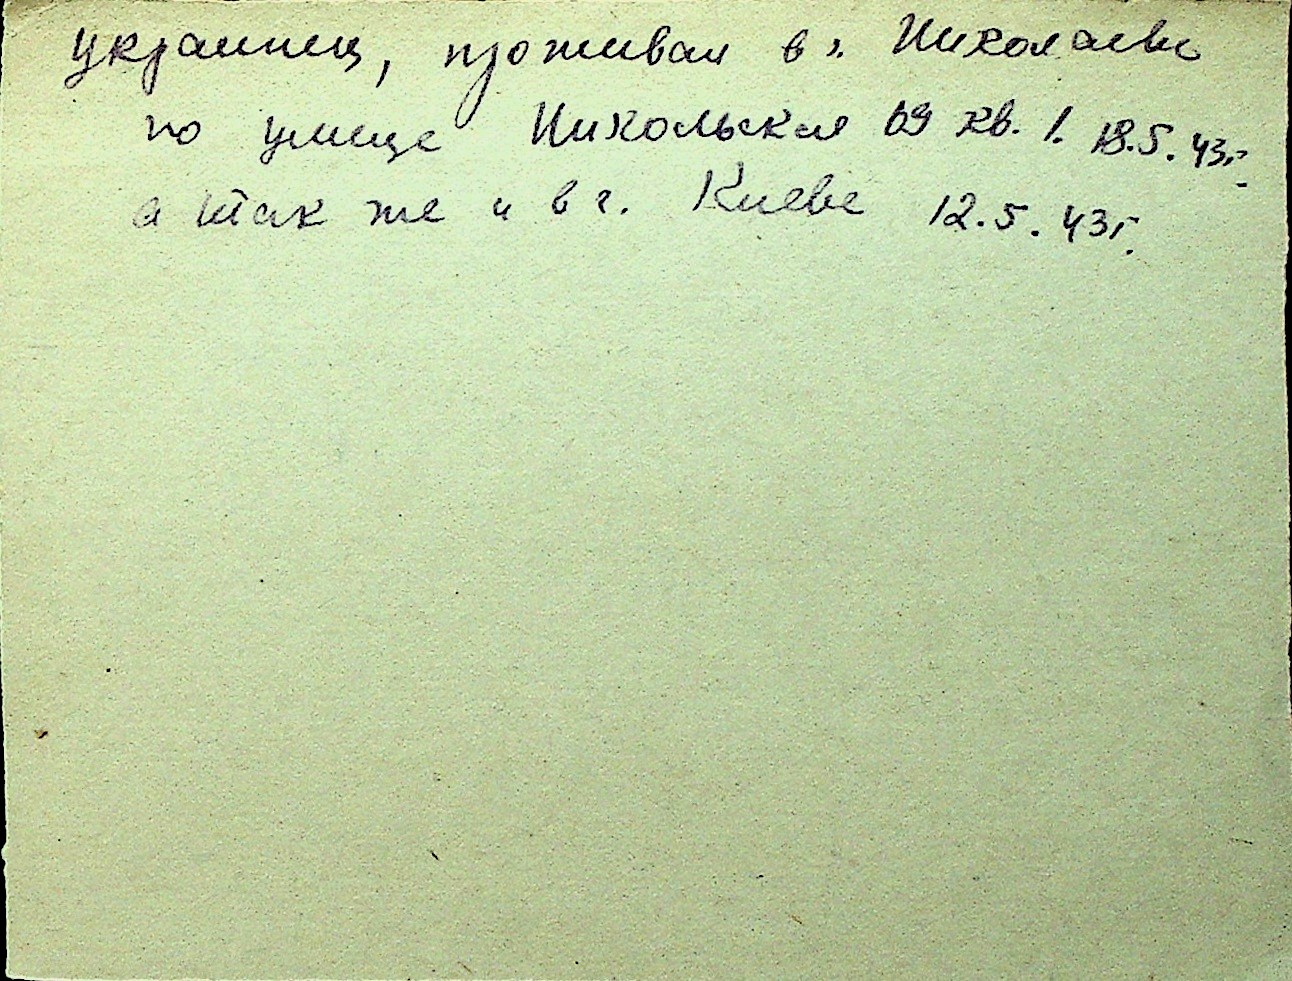 украинец, проживал в г. Николаеве
по улице Никольская 69 кв. 1. 18.5.43г.
а так же и в г. Киеве 12.5.43г.